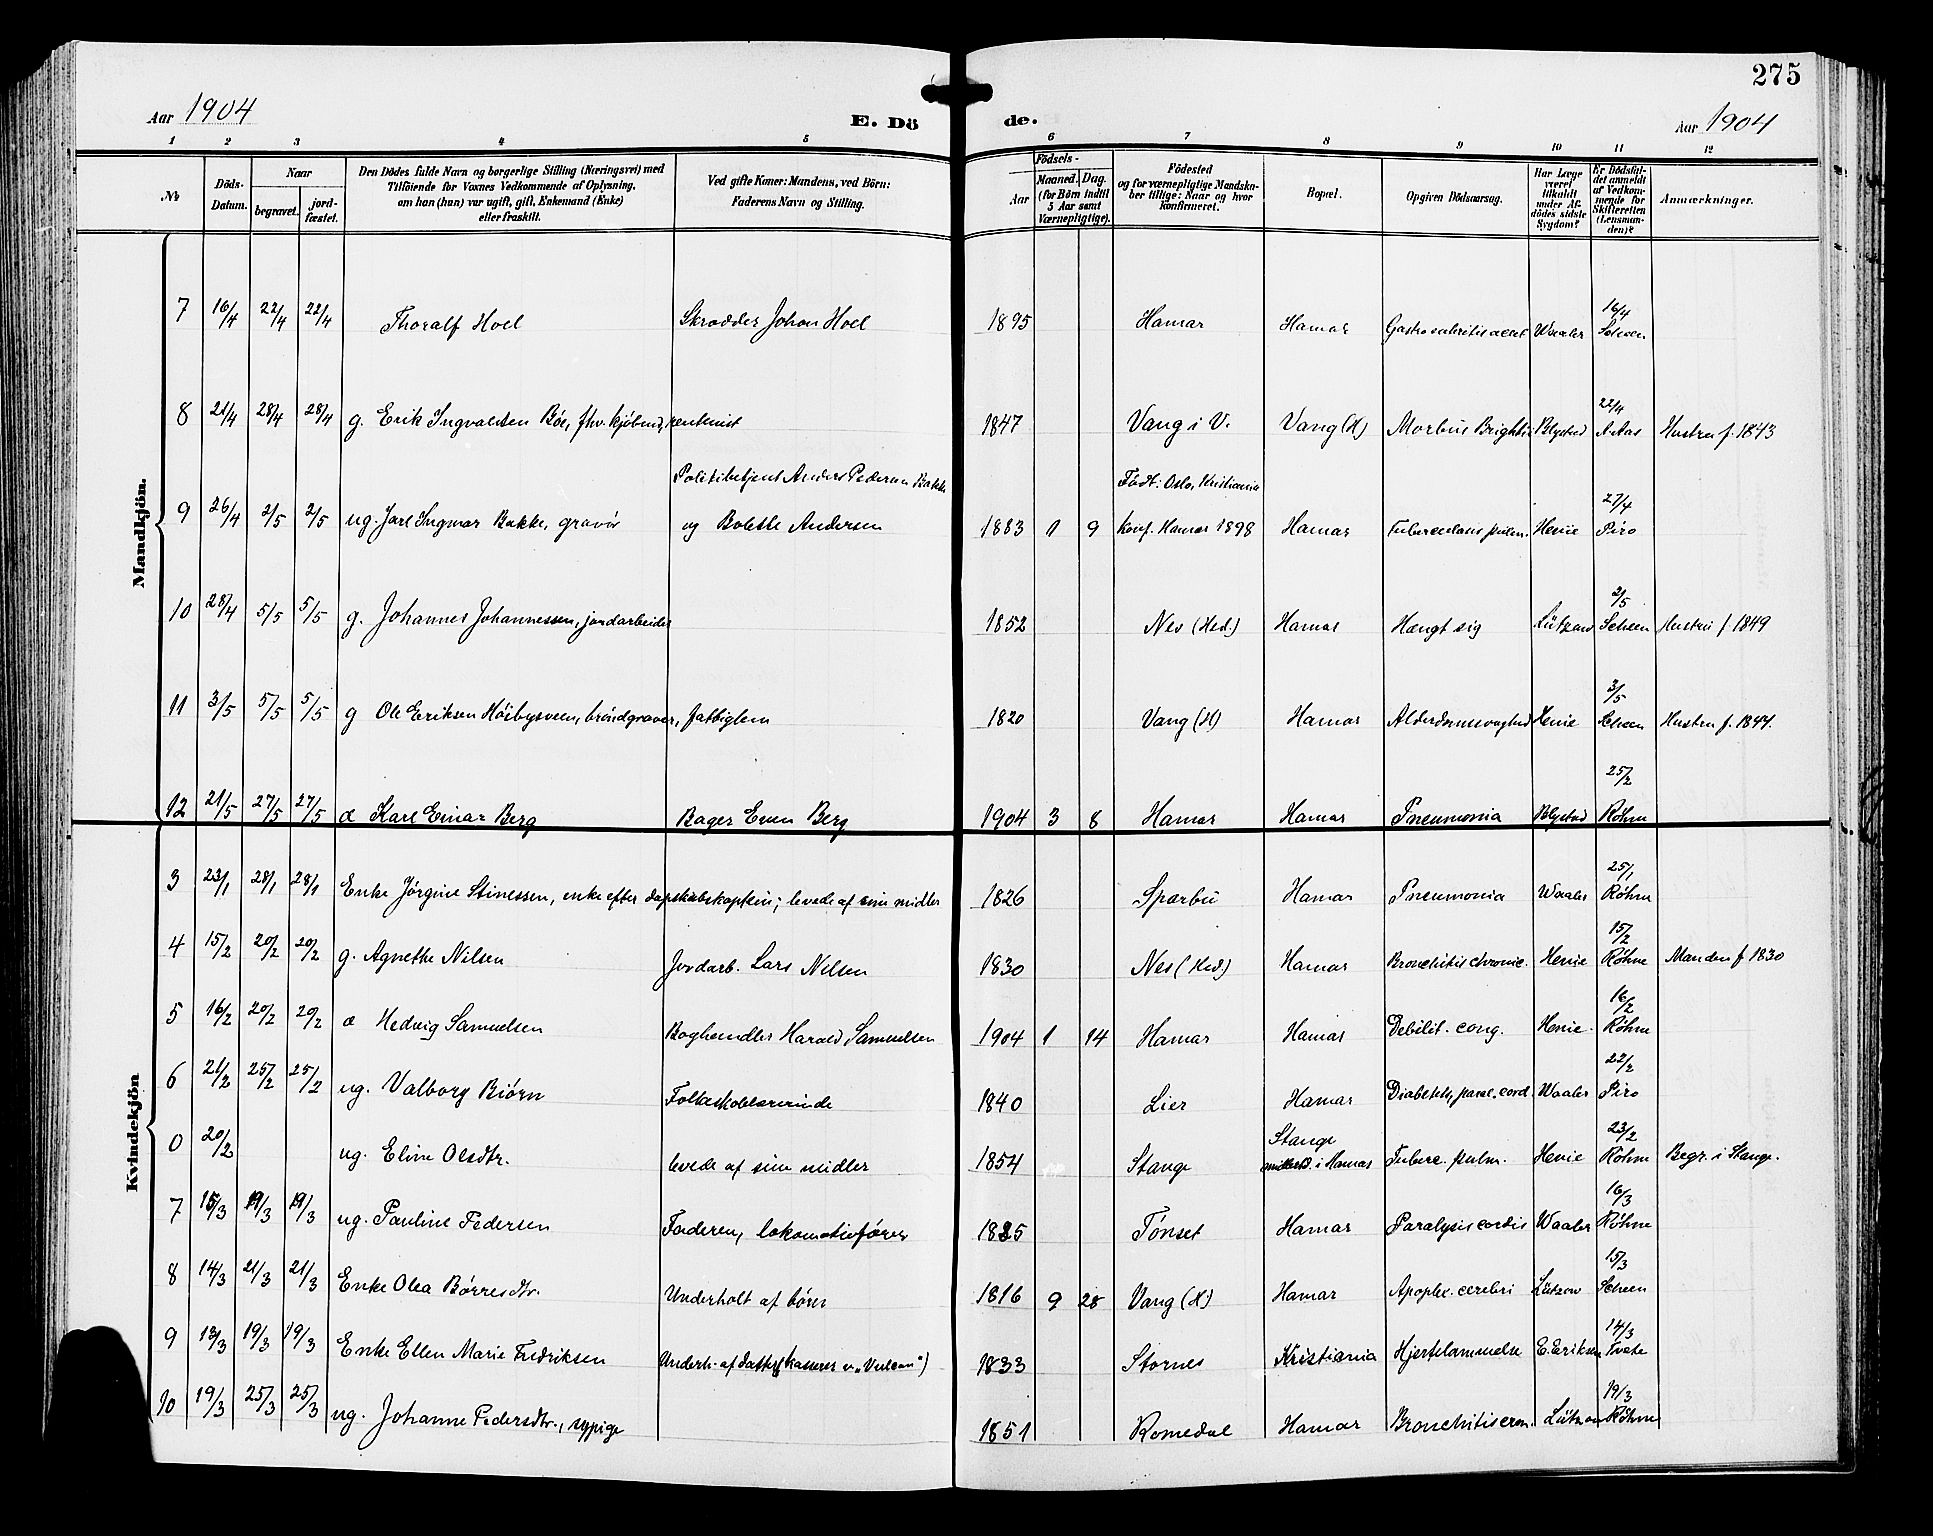 275
Aar 1904 E. Dö de. Aar 1904
1 2 3 4 5 6 7 8 9 10 11 12
No
Döds-Datum.
Naar
begravet.
jord-fæstet.
Den Dödes fulde Navn og borgerlige Stilling (Næringsvei) med
Tilföiende for Voxnes Vedkommende af Oplysning,
om han (hun) var ugift, gift, Enkemand (Enke)
eller fraskilt.
Ved gifte Koner: Mandens, ved Börn:
Faderens Navn og Stilling.
Födsels-
Aar
Maaned. Dag.
(for Börn indtil
5 Aar samt
Værnepligtige).
Födested
og for værnepligtige Mandska-
ber tillige: Naar og hvor
konfirmeret.
Bopæl.
Opgiven Dödsaarsag.
Har Læge
været
tilkaldt
under Af-
dödes sidste
Sygdom?
Er Dödsfal-
det anmeldt
af Vedkom-
mende for
Skifteretten
(Lensman-
den)?
Anmærkninger.
Mandkjön.
7 16/4 22/4 22/4 Thoralf Hoel Skrædder Johan Hoel 1895 Hamar Hamar Waaler 16/4 Scheen
8 21/4 28/4 28/4 g. Erik Ingvaldsen Böe, fhv. kjöbmd, rentenist 1847 Vang i V. Vang (H) Morbus Brightii Blystad 22/4 Hustru f. 1843
9 26/4 2/5 2/5 ug. Jarl Ingmar Bakke, gravör Politibetjent Anders Pedersen Bakke
og Bolette Andersen 1883 1 9 Födt: Oslo, Kristiania
konf. Hamar 1898 Hamar Tuberculosis pulm. Henie 27/4 Piro
10 28/4 5/5 5/5 g. Johannes Johannessen, jordarbeider 1852 Nes (Hed.) Hamar Hængt sig Lützow 2/5 Scheen Hustru f 1849
11 3/5 5/5 5/5 g Ole Eriksen Höibysveen, bröndgraver, fattiglem 1820 Vang (H) Hamar Alderdomssvaghed Henie 3/5 Scheen Hustru f. 1844.
12 21/5 27/5 27/5 æ Karl Einar Berg Bager Even Berg 1904 3 8 Hamar Hamar Pneumonia Blystad 25/2 Röhm
Kvindekjön
3 23/1 28/1 28/1 Enke Jörgine Stinessen, enke efter dapskibskaptein; levede af sine midler 1826 Sparbu Hamar Pneumonia Waaler 25/1 Röhm
4 15/2 20/2 20/2 g. Agnethe Nilsen Jordarb. Lars Nilsen 1830 Nes (Hed.) Hamar Bronchitis chronic. Henie 15/2 Röhm Manden f 1830
5 16/2 20/2 20/2 æ Hedvig Samuelsen Boghandler Harald Samuelsen 1904 1 14 Hamar Hamar Debilit. cong. Henie 16/2 Röhm
6 21/2 25/2 25/2 ug. Valborg Biörn Folkeskolelærerinde 1840 Lier Hamar Diabetes, paral. cord. Waaler 22/2 Piro
0 20/2 ug. Eline Olsdtr. levede af sine midler 1854 Stange Stange
midlert. i Hamar Tuberc. pulm. Henie 23/2 Röhm Begr. i Stange.
7 15/3 19/3 19/3 ug. Pauline Pedersen Faderen, lokomotivförer Tönset Hamar Paralysis cordis Waaler 16/3 Röhm
8 14/3 21/3 21/3 Enke Olea Börresdtr. Underholt af börn 1816 9 28 Vang (H) Hamar Apoplex. cerebri Lützow 15/3 Scheen
9 13/3 19/3 19/3 Enke Ellen Marie Fredriksen Underh. af datter (kasserer v. „Vulcan“) 1833 Stornes Kristiania Hjertelammelse E. Eriksen 14/3 Tvete
10 19/3 25/3 25/3 ug. Johanne Pedersdtr., sypige 1851 Romedal Hamar Lützow 19/3 Röhm